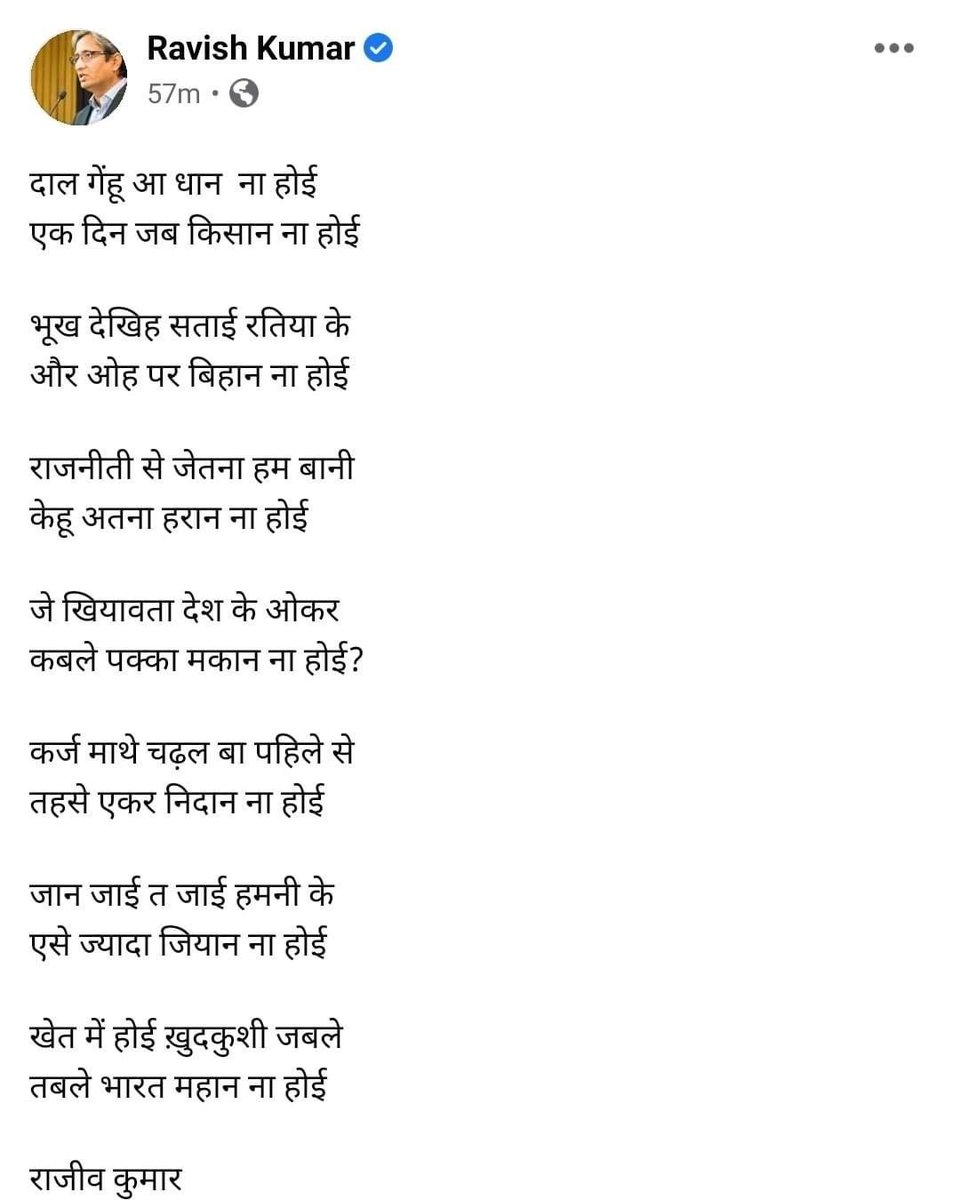 Ravish Kumar
57m ·
दाल गेंहू आ धान ना होई
एक दिन जब किसान ना होई
भूख देखिह सताई रतिया के
और ओह पर बिहान ना होई
राजनीती से जेतना हम बानी
केहू अतना हरान ना होई
जे खियावता देश के ओकर
कबले पक्का मकान ना होई?
कर्ज माथे चढ़ल बा पहिले से
तहसे एकर निदान ना होई
जान जाई त जाई हमनी के
एसे ज्यादा जियान ना होई
खेत में होई ख़ुदकुशी जबले
तबले भारत महान ना होई
राजीव कुमार